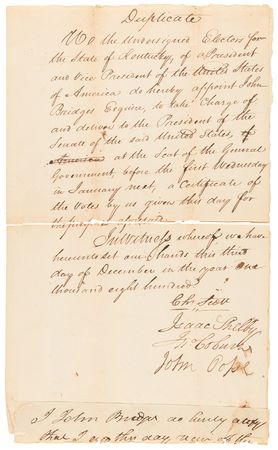 Duplicate
We the Undersigned Electors for
the State of Kentucky, of a President
and Vice President of the United States
of America do hereby appoint John
Bridges Esquire, to take Charge of
and deliver to the President of the
Senate of the said United States, of
America at the Seat of the General
Government before the first Wednesday
in January next, a Certificate of
the Votes by us given this day for
the purpose aforesaid
In witness whereof we have
hereunto set our hands this third
day of December in the year One
thousand eight hundred
Chs Scott
Isaac Shelby
Jn Coburn
John Pope
I John Bridges do hereby
that I on this day